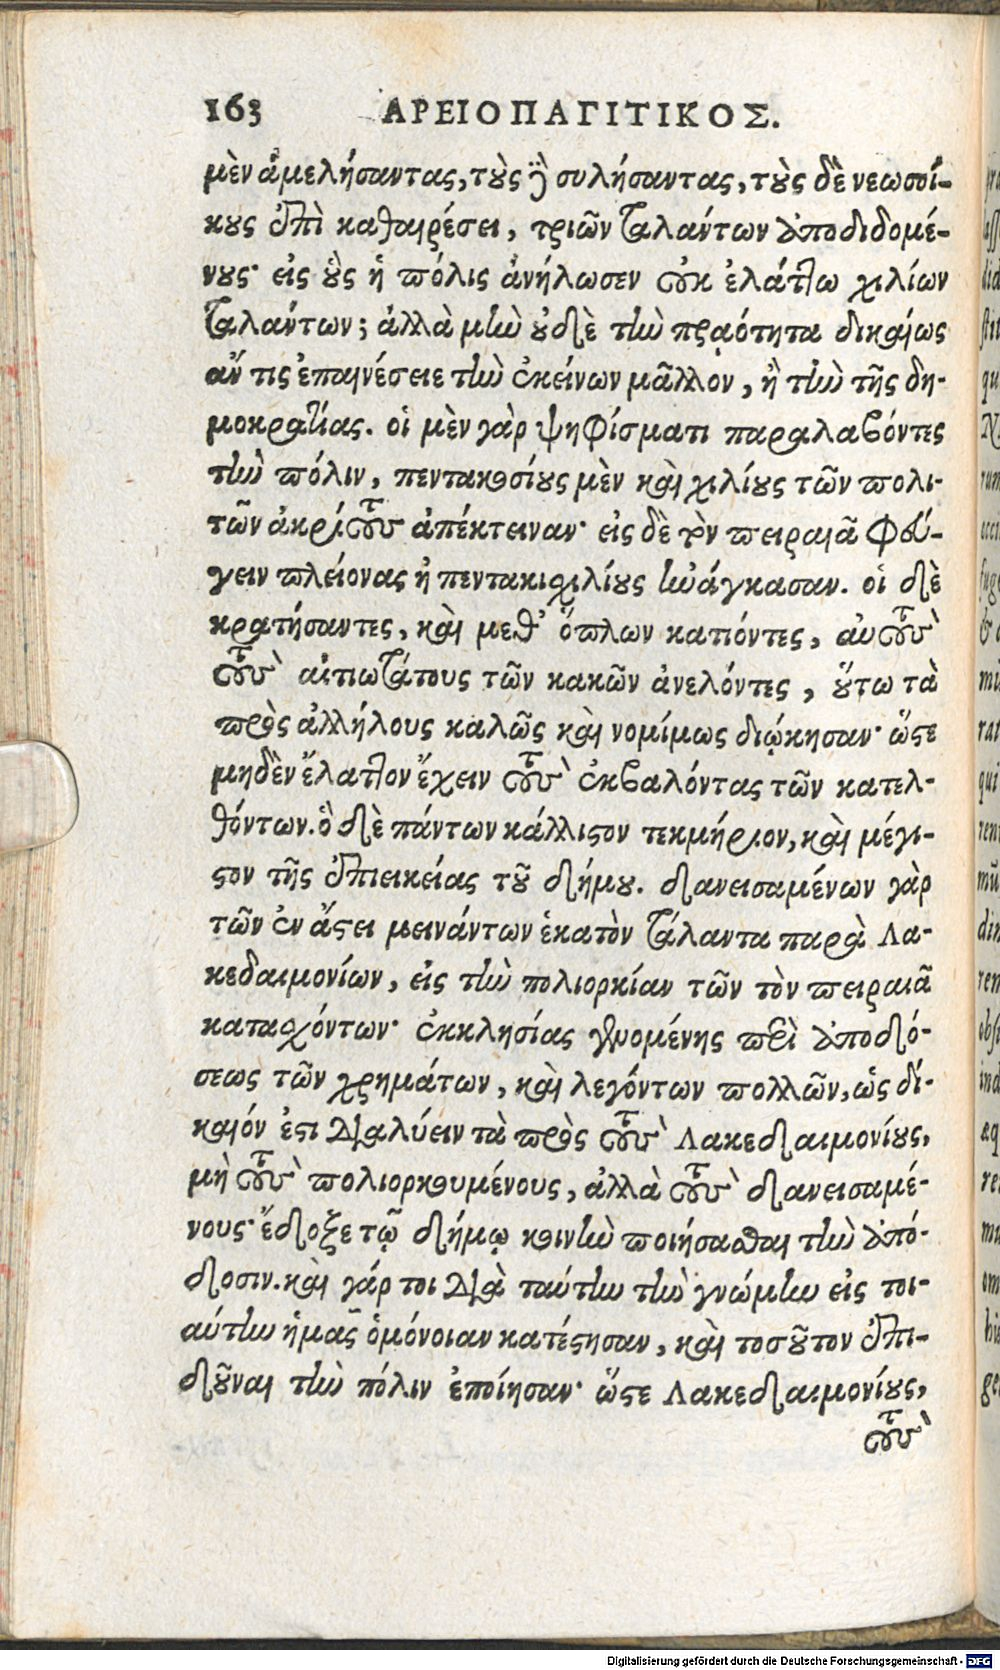 163 ΑΡΕΙΟΠΑΓΙΤΙΚΟΣ.
μὲν ἀμελήσαντας, τοὺς δὲ συλήσαντας, τοὺς δὲ νεωσοί-
κους ἐπὶ καθαιρέσει, τριῶν ταλάντων ἀποδιδομέ-
νους· εἰς οὓς ἡ πόλις ἀνήλωσεν οὐκ ἐλάττω χιλίων
ταλάντων; ἀλλὰ μὴν οὐδὲ τὴν πρᾳότητα δικαίως
ἄν τις ἐπαινέσειε τὴν ἐκείνων μᾶλλον, ἢ τὴν τῆς δη-
μοκρατίας. οἱ μὲν γὰρ ψηφίσματι παραλαβόντες
τὴν πόλιν, πεντακοσίους μὲν καὶ χιλίους τῶν πολι-
τῶν ἀκρίτους ἀπέκτειναν· εἰς δὲ τὸν πειραιᾶ φεύ-
γειν πλείονας ἢ πεντακιχιλίους ἠνάγκασαν. οἱ δὲ
κρατήσαντες, καὶ μεθ' ὅπλων κατιόντες, αὐτοὺς
τοὺς αἰτιωτάτους τῶν κακῶν ἀνελόντες, οὕτω τὰ
πρὸς ἀλλήλους καλῶς καὶ νομίμως διῴκησαν· ὥστε
μηδὲν ἔλαττον ἔχειν τοὺς ἐκβαλόντας τῶν κατελ-
θόντων. ὃ δὲ πάντων κάλλιστον τεκμήριον, καὶ μέγι-
στον τῆς ἐπιεικείας τοῦ δήμου. δανεισαμένων γὰρ
τῶν ἐν ἄστει μεινάντων ἑκατὸν τάλαντα παρὰ Λα-
κεδαιμονίων, εἰς τὴν πολιορκίαν τῶν τὸν πειραιᾶ
κατασχόντων· ἐκκλησίας γενομένης περὶ ἀποδό-
σεως τῶν χρημάτων, καὶ λεγόντων πολλῶν, ὡς δί-
καιόν ἐστι διαλύειν τὰ πρὸς τοὺς Λακεδαιμονίους,
μὴ τοὺς πολιορκουμένους, ἀλλὰ τοὺς δανεισαμέ-
νους· ἔδοξε τῷ δήμῳ κοινὴν ποιήσασθαι τὴν ἀπό-
δοσιν. καὶ γάρ τοι διὰ ταύτην τὴν γνώμην εἰς τοι-
αύτην ἡμᾶς ὁμόνοιαν κατέστησαν, καὶ τοσοῦτον ἐπι-
δοῦναι τὴν πόλιν ἐποίησαν· ὥστε Λακεδαιμονίους,
τοὺς
Digitalisierung gefördert durch die Deutsche Forschungsgemeinschaft - DFG